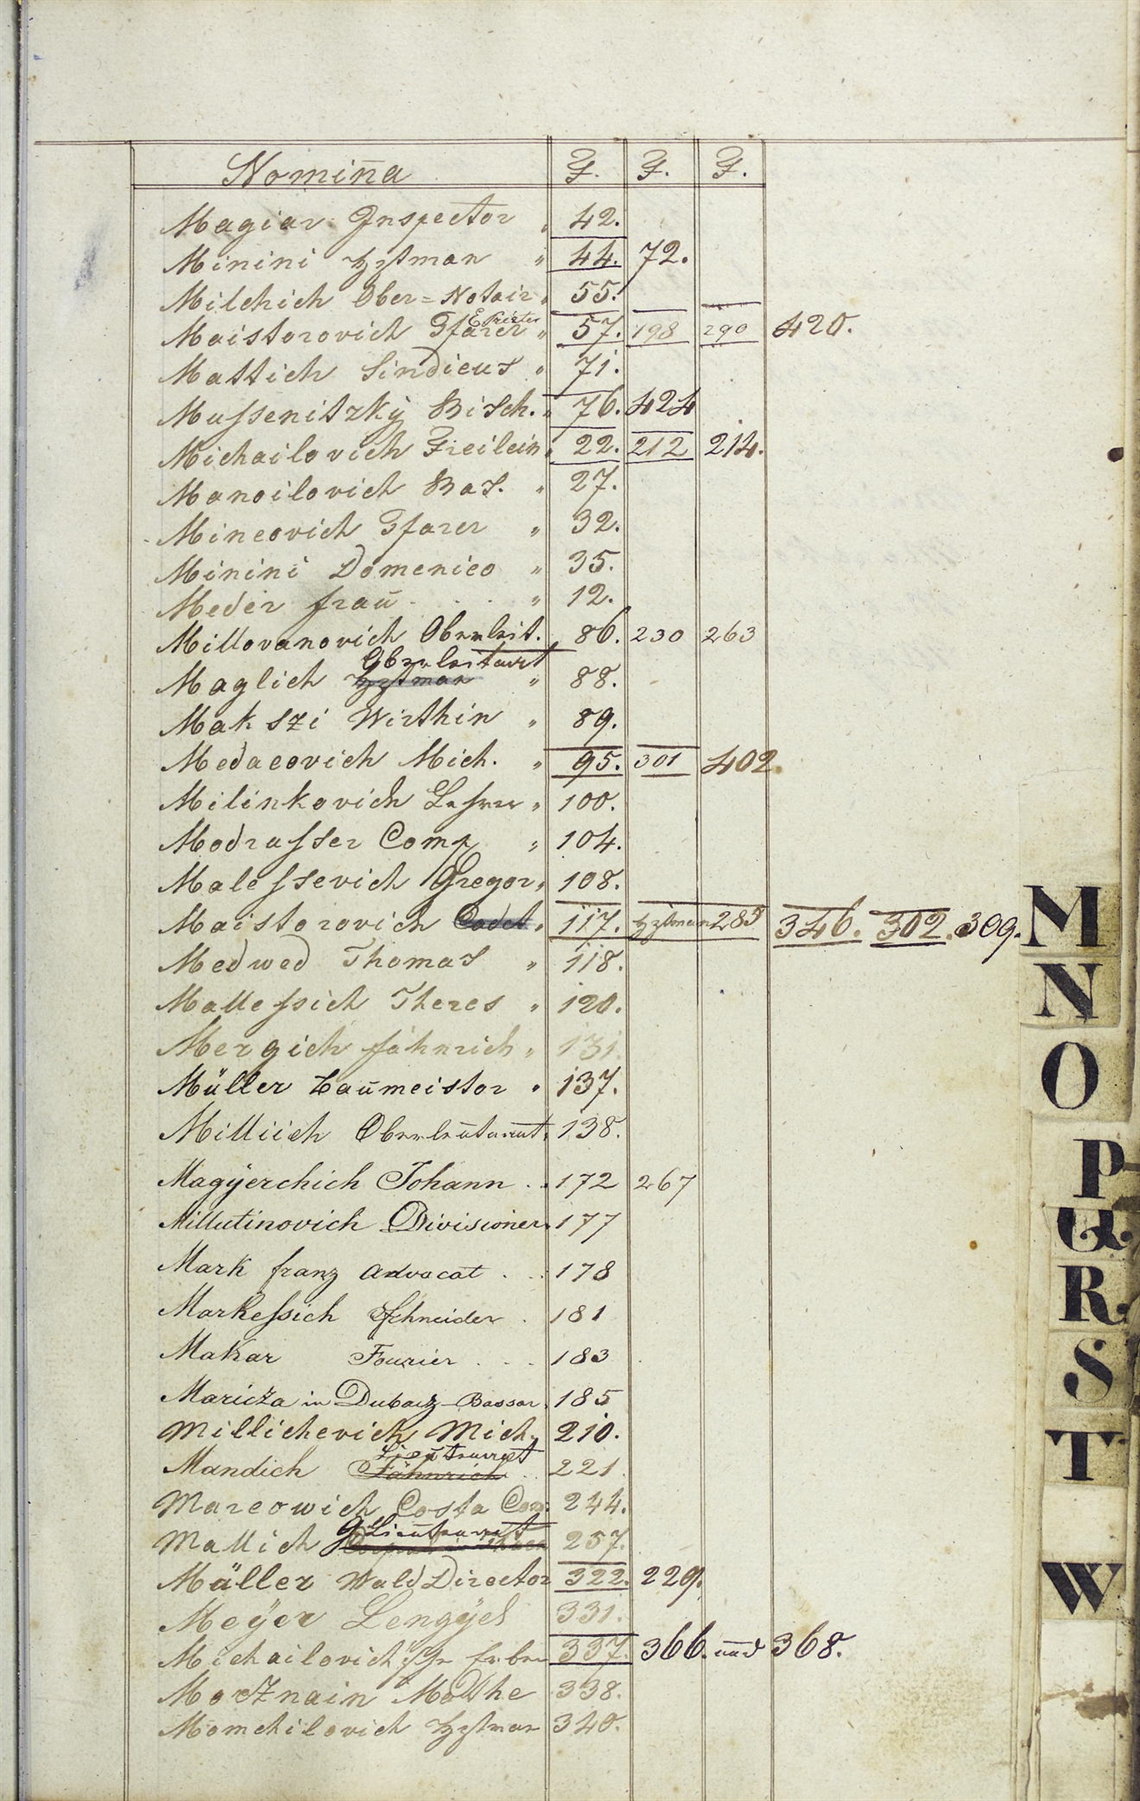 Nomina F. F. F.
Magiar Inspector " 42.
Minini Hptman " 44. 72.
Milchich Ober=Notair " 55.
Maistorovich Pfarer " 57. 198 290 420.
Mattich Sindicus " 71.
Mussenitzkÿ Bisch. " 76. 424
Michailovich Freilein " 22. 212 214.
Manoilovich Bas. " 27.
Mineovich Pfarer " 32.
Minini Domenico " 35.
Meder Frau " 12.
Millovanovich Oberleit. 86. 230 263
Oberleitnant
Maglich Hptman " 88.
Makszi Wirthin " 89.
Medacovich Mich. " 95. 301 402.
Milinkovich " 100.
Modrasser Comp " 104.
Malessevich Gregor " 108.
Maistorovich Cadet " 117. Hptman 285 346. 302. 309.
Medwed Thomas " 118.
Mallessich Theres " 120.
Mergich Fähnrich " 131.
Müller Baumeistor " 137.
Milliich Oberleutenant 138.
Magÿerchich Johann . . 172 267
Millutinovich Divisioner 177
Mark Franz Advocat . . 178
Markessich Schneider . 181
Makar Fourier . . . 183
Maricza in Dubacz-Bassar 185
Millichevich Mich. 210.
Lieutenant
Mandich Fähnrich . . 221
Marcowich Costa Con. 244.
Lieutenant
Mallich 257.
Müller Wald Director 322. 229.
Meÿer Lengÿel 331.
Michailovich Erben 337. 366. und 368.
Mortznain Mothe 338.
Momchilovich Hptman 340.
M
N
O
P
Q
R
S
T
W